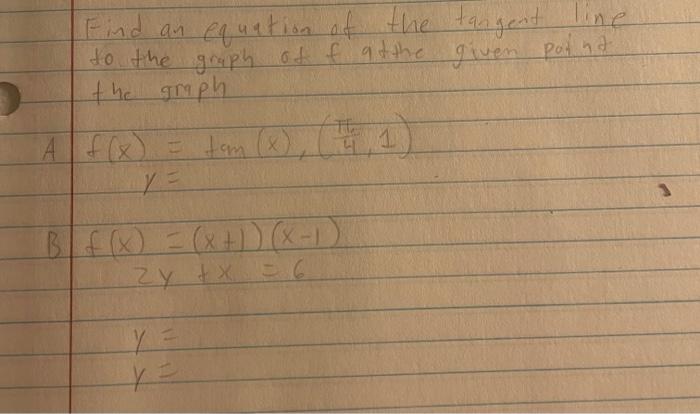 Find an equation of the tangent line
to the graph of f at the given point
the graph
A f(x) = tan(x), (π/4, 1)
y =
B f(x) = (x+1)(x-1)
2y + x = 6
y =
y =